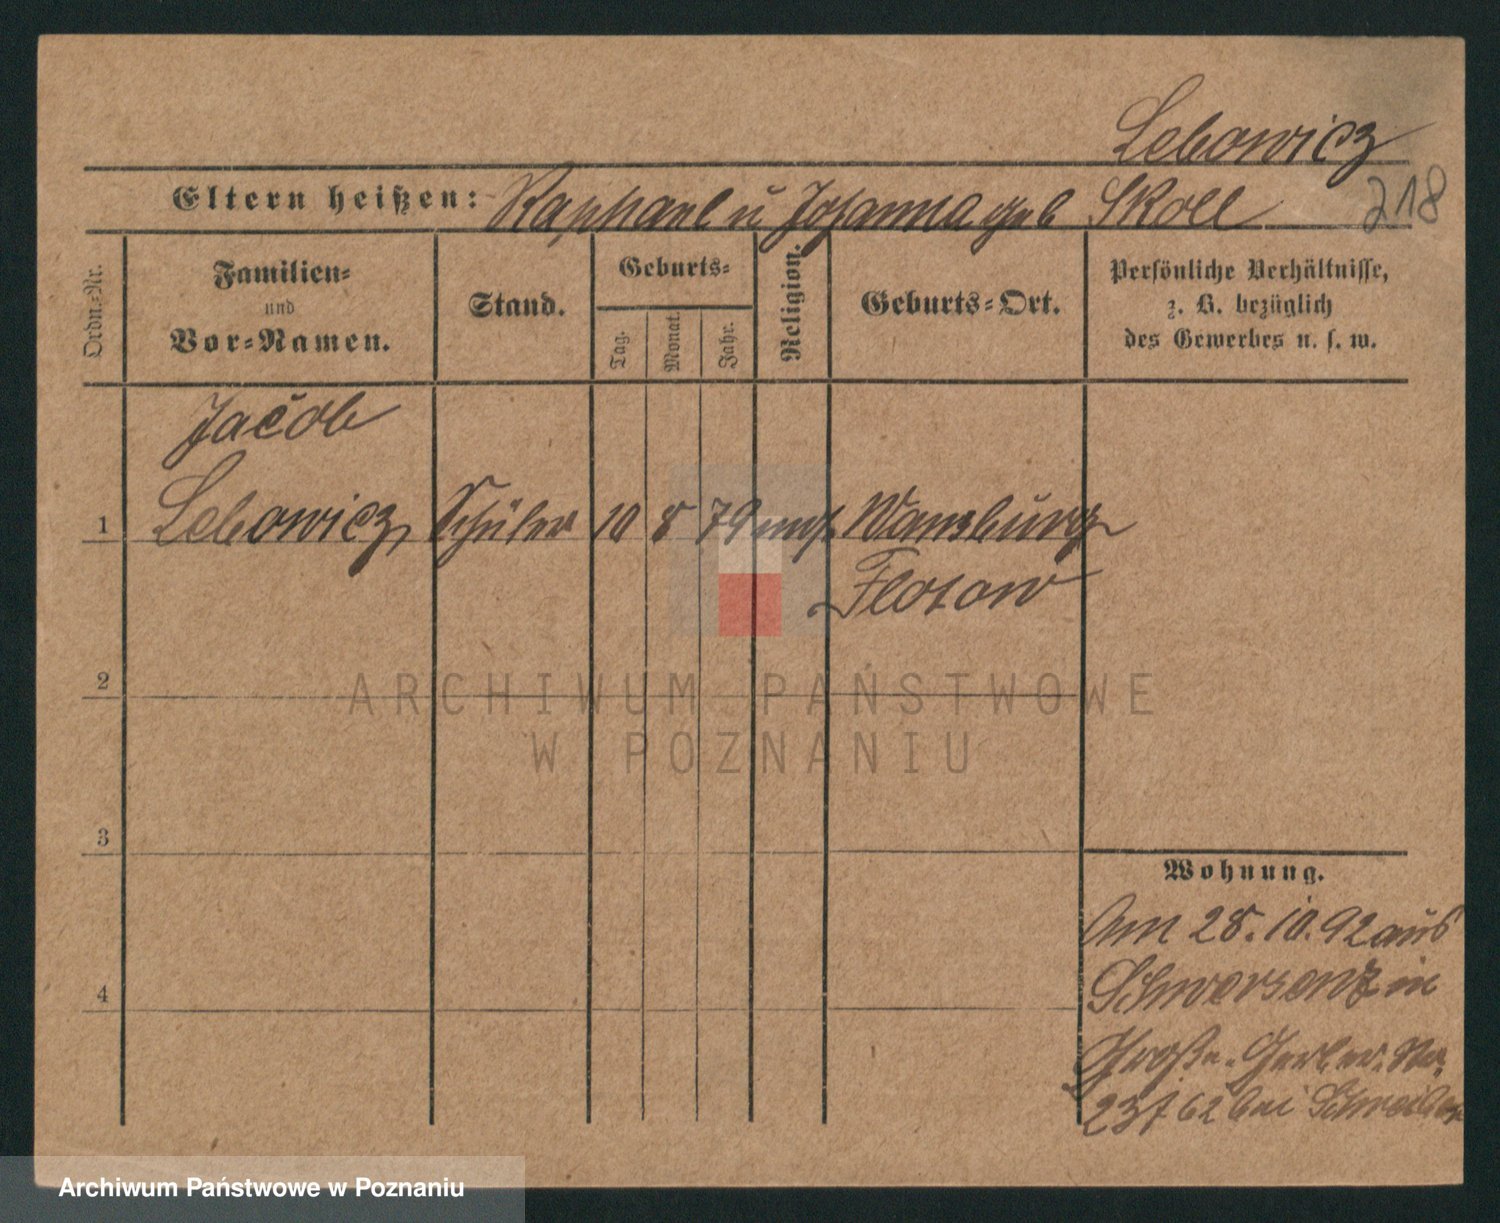 Lebowicz
Eltern heißen: Raphael u Johanna geb Skoll
218
Ordn.-Nr.
Familien- und Vor-Namen.
Stand.
Geburts-
Tag. Monat. Jahr.
Religion.
Geburts-Ort.
Persönliche Verhältnisse,
z. B. bezüglich
des Gewerbes u. s. w.
Jacob
1 Lebowicz, Schüler 10 8 79 mos. Wansburg
Flotow
2
3
4
Wohnung.
Am 28.10.92 aus
Schwersenz in
Große-Gerber-Str.
23 / 62 bei Schreiber
ARCHIWUM PAŃSTWOWE
W POZNANIU
Archiwum Państwowe w Poznaniu